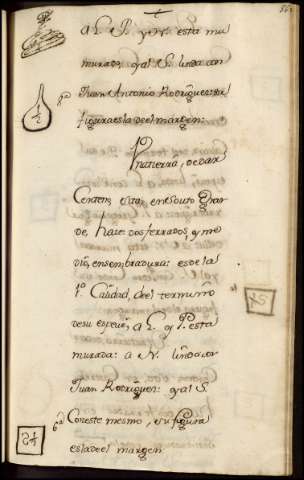 a L. P. y N. esta mu
murada, y al S. linda con
Juan Antonio Rodriguez su
figura es la de el margen:
Vna tierra, de dar
Centeno, sita, en el Souto Gran
de, haze dos ferrados, y me
dio, en sembradura: es de la
1ª Calidad, de el termino
de su especie, a L. y P. esta
murada: a N. linda con
Juan Rodriguez: y al S.
6ª Con este mesmo, su figura
es la de el margen